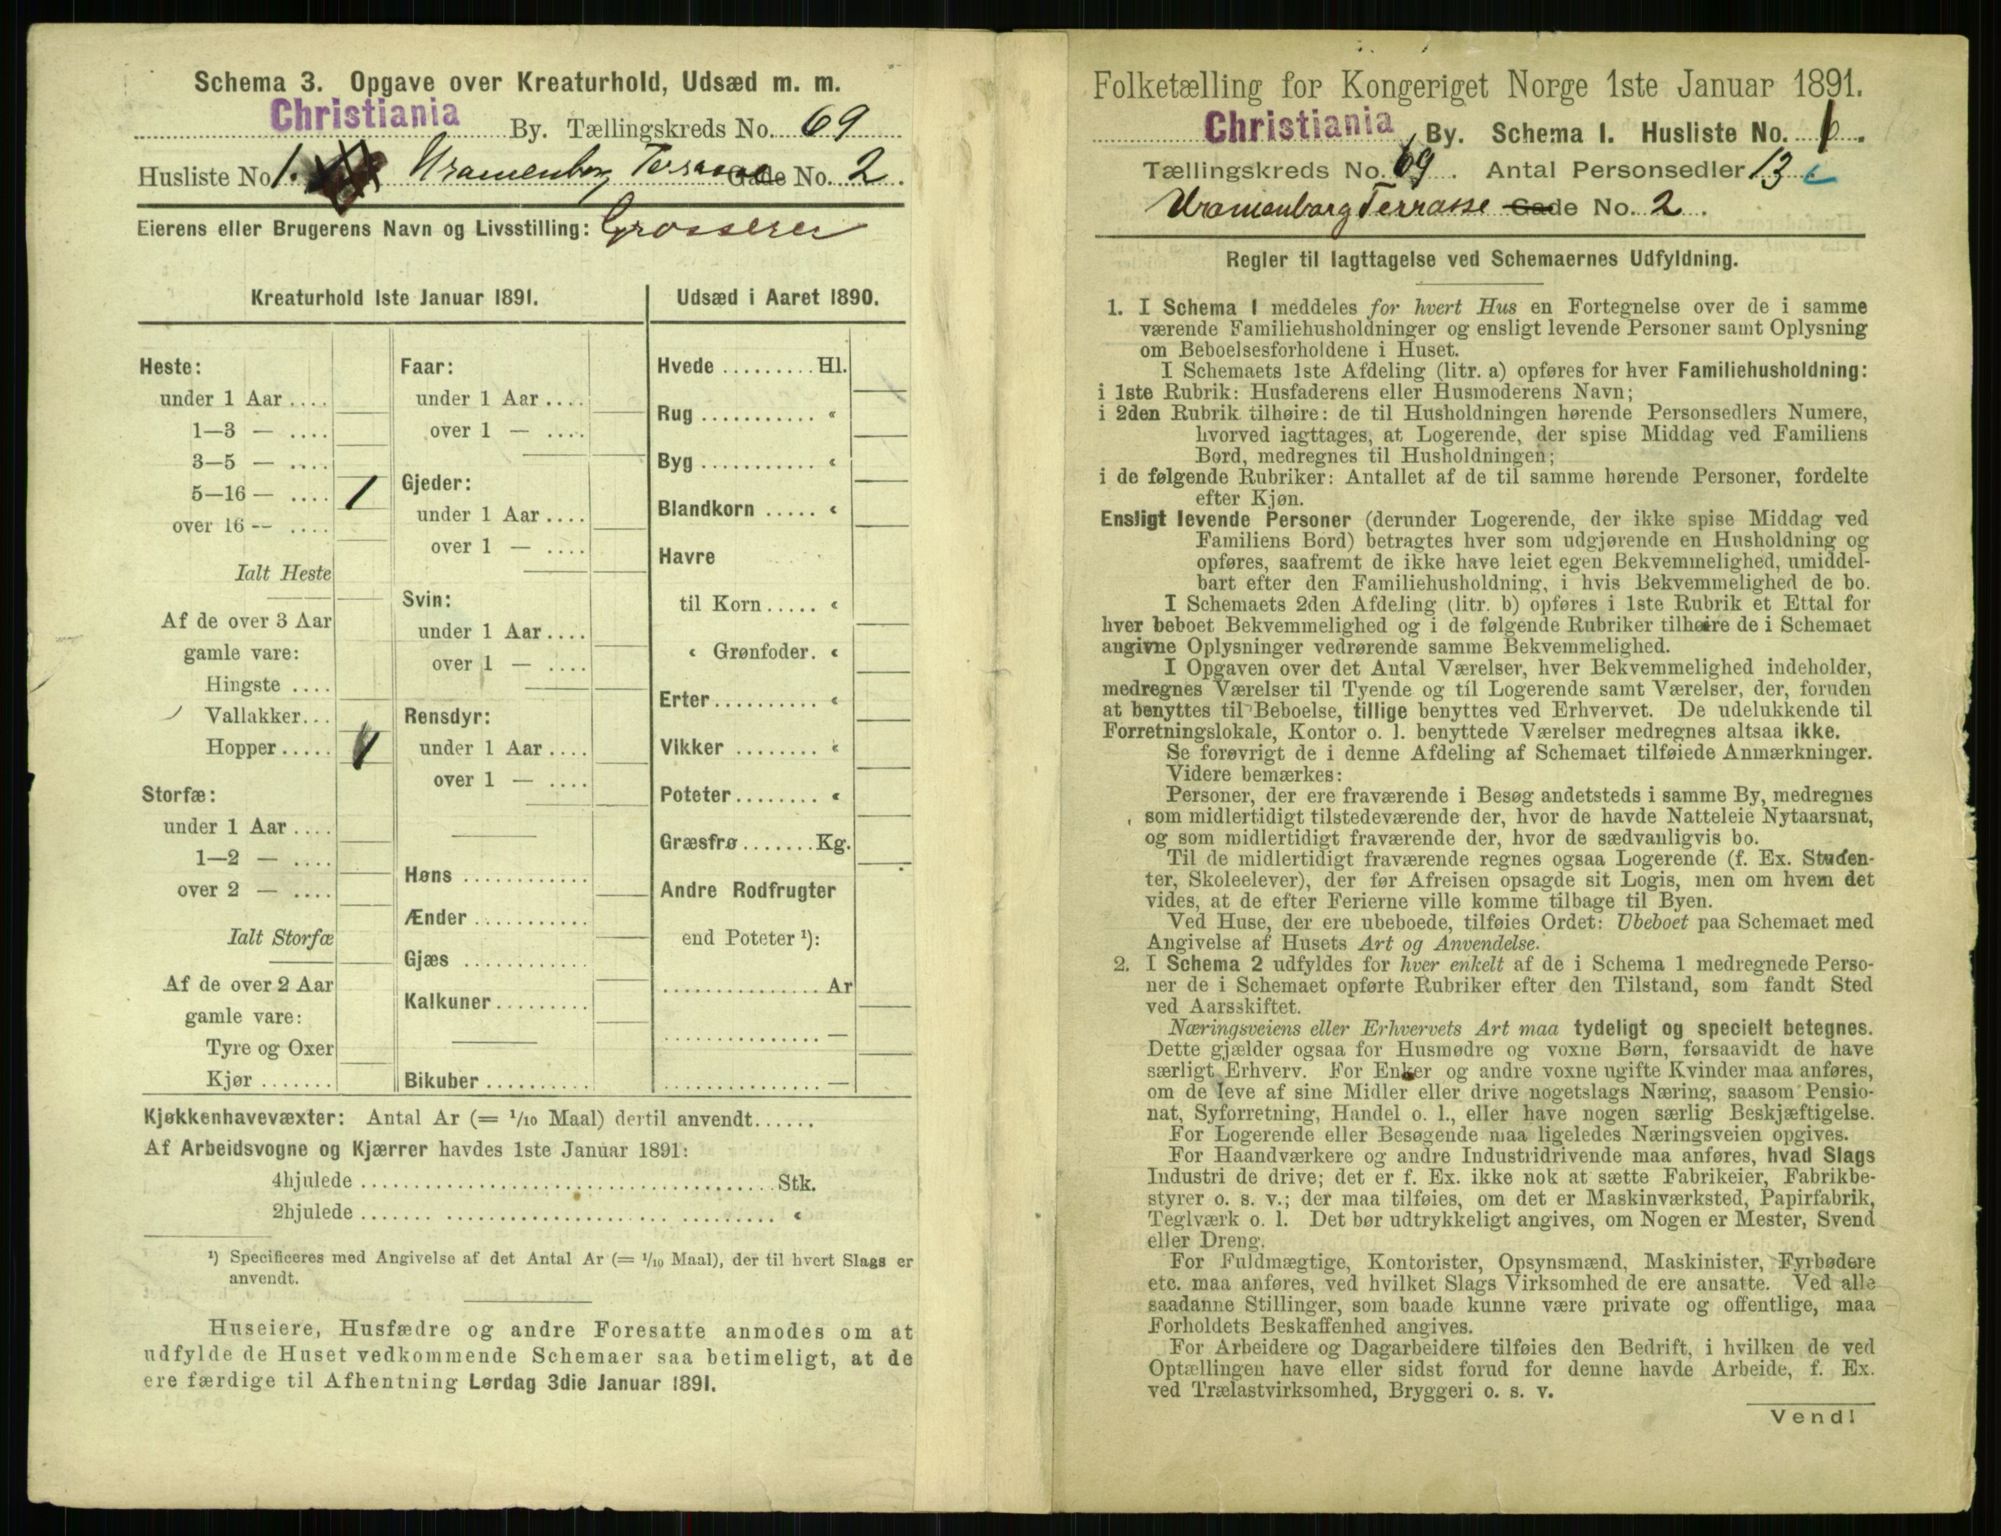 Schema 3. Opgave over Kreaturhold, Udsæd m. m.
Christiania By. Tællingskreds No. 69
Husliste No. 1. Uranienborg Terrasse Gade No. 2.
Eierens eller Brugerens Navn og Livsstilling: Grosserer
Kreaturhold 1ste Januar 1891.
Heste:
under 1 Aar ....
1—3 — ....
3—5 — ....
5—16 — .... 1
over 16 -- ....
Ialt Heste
Af de over 3 Aar
gamle vare:
Hingste ....
Vallakker...
Hopper ..... 1
Storfæ:
under 1 Aar ....
1—2 — ....
over 2 — ....
Ialt Storfæ
Af de over 2 Aar
gamle vare:
Tyre og Oxer
Kjør .......
Faar:
under 1 Aar ....
over 1 — ....
Gjeder:
under 1 Aar ....
over 1 — ....
Svin:
under 1 Aar ....
over 1 — ....
Rensdyr:
under 1 Aar ....
over 1 — ....
Høns ............
Ænder ...........
Gjæs ............
Kalkuner .........
Bikuber ..........
Udsæd i Aaret 1890.
Hvede ......... Hl.
Rug ........... «
Byg ........... «
Blandkorn ..... «
Havre
til Korn ..... «
« Grønfoder. «
Erter .......... «
Vikker ........ «
Poteter ........ «
Græsfrø ....... Kg.
Andre Rodfrugter
end Poteter ¹):
............... Ar
............... —
............... —
Kjøkkenhavevæxter: Antal Ar (= 1/10 Maal) dertil anvendt......
Af Arbeidsvogne og Kjærrer havdes 1ste Januar 1891:
4hjulede ........................................ Stk.
2hjulede ........................................ «
¹) Specificeres med Angivelse af det Antal Ar (= 1/10 Maal), der til hvert Slags er
anvendt.
Huseiere, Husfædre og andre Foresatte anmodes om at
udfylde de Huset vedkommende Schemaer saa betimeligt, at de
ere færdige til Afhentning Lørdag 3die Januar 1891.
Folketælling for Kongeriget Norge 1ste Januar 1891.
Christiania By. Schema 1. Husliste No. 1.
Tællingskreds No. 69. Antal Personsedler 13.
Uranienborg Terrasse Gade No. 2.
Regler til Iagttagelse ved Schemaernes Udfyldning.
1. I Schema 1 meddeles for hvert Hus en Fortegnelse over de i samme
værende Familiehusholdninger og ensligt levende Personer samt Oplysning
om Beboelsesforholdene i Huset.
I Schemaets 1ste Afdeling (litr. a) opføres for hver Familiehusholdning:
i 1ste Rubrik: Husfaderens eller Husmoderens Navn;
i 2den Rubrik tilhøire: de til Husholdningen hørende Personsedlers Numere,
hvorved iagttages, at Logerende, der spise Middag ved Familiens
Bord, medregnes til Husholdningen;
i de følgende Rubriker: Antallet af de til samme hørende Personer, fordelte
efter Kjøn.
Ensligt levende Personer (derunder Logerende, der ikke spise Middag ved
Familiens Bord) betragtes hver som udgjørende en Husholdning og
opføres, saafremt de ikke have leiet egen Bekvemmelighed, umiddel-
bart efter den Familiehusholdning, i hvis Bekvemmelighed de bo.
I Schemaets 2den Afdeling (litr. b) opføres i 1ste Rubrik et Ettal for
hver beboet Bekvemmelighed og i de følgende Rubriker tilhøire de i Schemaet
angivne Oplysninger vedrørende samme Bekvemmelighed.
I Opgaven over det Antal Værelser, hver Bekvemmelighed indeholder,
medregnes Værelser til Tyende og til Logerende samt Værelser, der, foruden
at benyttes til Beboelse, tillige benyttes ved Erhvervet. De udelukkende til
Forretningslokale, Kontor o. l. benyttede Værelser medregnes altsaa ikke.
Se forøvrigt de i denne Afdeling af Schemaet tilføiede Anmærkninger.
Videre bemærkes:
Personer, der ere fraværende i Besøg andetsteds i samme By, medregnes
som midlertidigt tilstedeværende der, hvor de havde Natteleie Nytaarsnat,
og som midlertidigt fraværende der, hvor de sædvanligvis bo.
Til de midlertidigt fraværende regnes ogsaa Logerende (f. Ex. Studen-
ter, Skoleelever), der før Afreisen opsagde sit Logis, men om hvem det
vides, at de efter Ferierne ville komme tilbage til Byen.
Ved Huse, der ere ubeboede, tilføies Ordet: Ubeboet paa Schemaet med
Angivelse af Husets Art og Anvendelse.
2. I Schema 2 udfyldes for hver enkelt af de i Schema 1 medregnede Perso-
ner de i Schemaet opførte Rubriker efter den Tilstand, som fandt Sted
ved Aarsskiftet.
Næringsveiens eller Erhvervets Art maa tydeligt og specielt betegnes.
Dette gjælder ogsaa for Husmødre og voxne Børn, forsaavidt de have
særligt Erhverv. For Enker og andre voxne ugifte Kvinder maa anføres,
om de leve af sine Midler eller drive nogetslags Næring, saasom Pensio-
nat, Syforretning, Handel o. l., eller have nogen særlig Beskjæftigelse.
For Logerende eller Besøgende maa ligeledes Næringsveien opgives.
For Haandværkere og andre Industridrivende maa anføres, hvad Slags
Industri de drive; det er f. Ex. ikke nok at sætte Fabrikeier, Fabrikbe-
styrer o. s. v.; der maa tilføies, om det er Maskinværksted, Papirfabrik,
Teglværk o. l. Det bør udtrykkeligt angives, om Nogen er Mester, Svend
eller Dreng.
For Fuldmægtige, Kontorister, Opsynsmænd, Maskinister, Fyrbødere
etc. maa anføres, ved hvilket Slags Virksomhed de ere ansatte. Ved alle
saadanne Stillinger, som baade kunne være private og offentlige, maa
Forholdets Beskaffenhed angives.
For Arbeidere og Dagarbeidere tilføies den Bedrift, i hvilken de ved
Optællingen have eller sidst forud for denne havde Arbeide, f. Ex.
ved Trælastvirksomhed, Bryggeri o. s. v.
Vend!